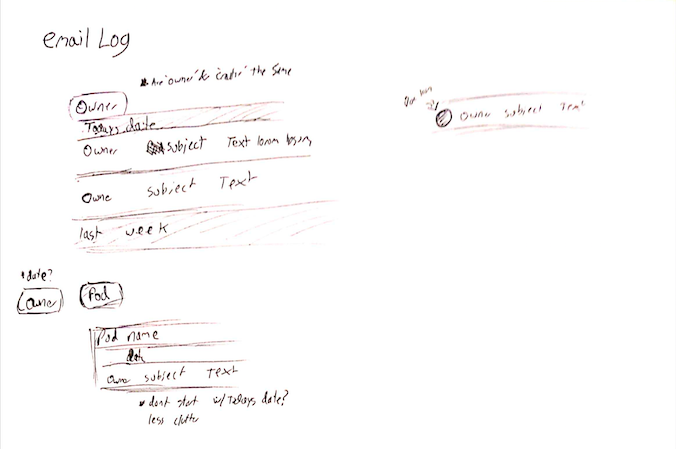 email Log
* Are "owner" & "creator" the same
Owner
Todays date
Owner subject Text lorem
Owne subject Text
last week
Owner subject Text
* date?
Owner Pod
Pod name
date
Owne subject Text
* dont start w/ Todays date?
less clutter